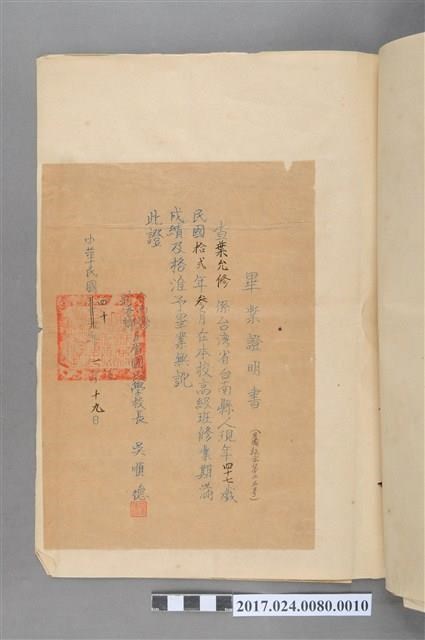 畢業證明書
查葉允修係台湾省台南縣人現年四十七歲
民國拾弍年叁月在本校高級班修業期滿
成績及格准予畢業無訛
此證
國民學校校長 吳順德
中華民國四十年 月十九日
2017.024.0080.0010